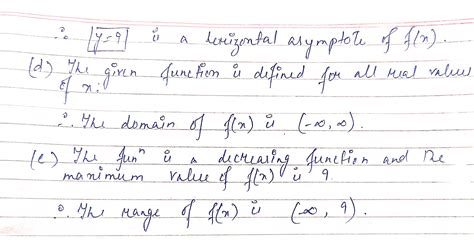 ∴ y=9 is a horizontal asymptote of f(x).
(d) The given function is defined for all real values
of x.
∴ The domain of f(x) is (-∞, ∞).
(e) The funⁿ is a decreasing function and the
maximum value of f(x) is 9
∴ The range of f(x) is (∞, 9).